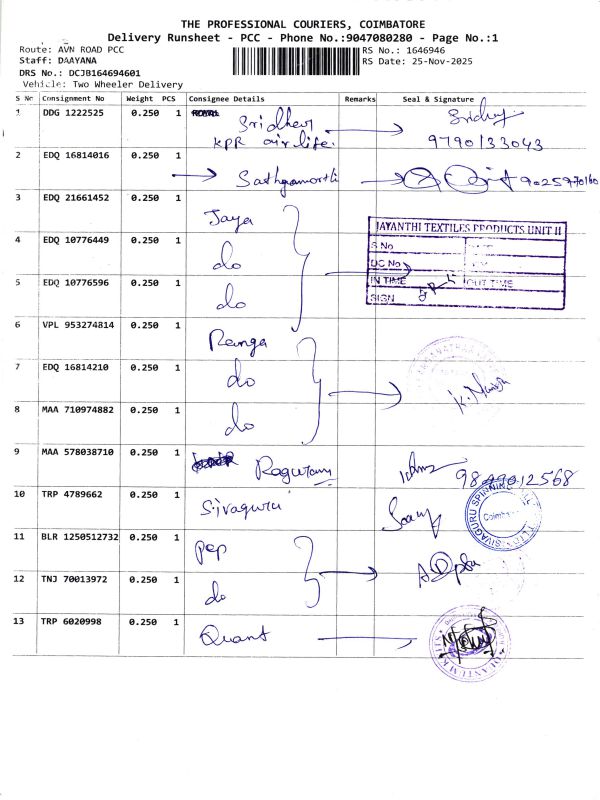 THE PROFESSIONAL COURIERS, COIMBATORE
Delivery Runsheet - PCC - Phone No.:9047080280 - Page No.:1
Route: AVN ROAD PCC
RS No.: 1646946
Staff: DAAYANA
RS Date: 25-Nov-2025
DRS No.: DCJB164694601
Vehicle: Two Wheeler Delivery
S Nr Consignment No Weight PCS Consignee Details Remarks Seal & Signature
1 DDG 1222525 0.250 1 Sridhevi
KPR airlife. 9790133043
2 EDQ 16814016 0.250 1
Sathyamorthi 9025970160
3 EDQ 21661452 0.250 1 Jaya
JAYANTHI TEXTILES PRODUCTS UNIT II
4 EDQ 10776449 0.250 1 do
S No
DC No
5 EDQ 10776596 0.250 1 do
IN TIME OUT TIME
SIGN
6 VPL 953274814 0.250 1 Ranga
7 EDQ 16814210 0.250 1 do
8 MAA 710974882 0.250 1 do
9 MAA 578038710 0.250 1 Raguram
10 TRP 4789662 0.250 1 Sivaguru
SIVAGURU SPINNING
11 BLR 1250512732 0.250 1 pep
12 TNJ 70013972 0.250 1 do
13 TRP 6020998 0.250 1 Quant